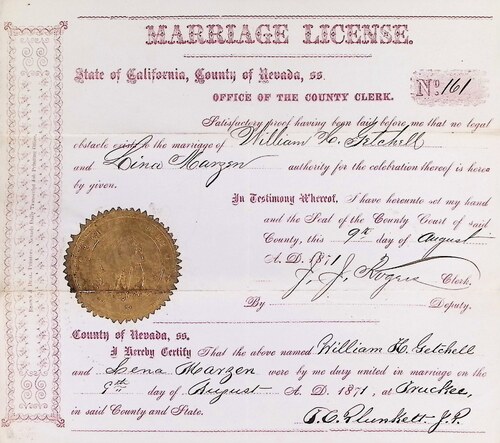 MARRIAGE LICENSE.
State of California, County of Nevada, ss.
OFFICE OF THE COUNTY CLERK.
No. 161
Satisfactory proof having been laid before me that no legal
obstacle exists to the marriage of William H. Getchell
and Lina Marzen authority for the celebration thereof is here
by given.
In Testimony Whereof, I have hereunto set my hand
and the Seal of the County Court of said
County, this 9th day of August
A. D. 1871
J. J. Rogers Clerk.
By Deputy.
County of Nevada, ss.
I Hereby Certify That the above named William H. Getchell
and Lena Marzen were by me duly united in marriage on the
9th day of August A. D. 1871, at Truckee,
in said County and State. T. C. Plunkett J.P.